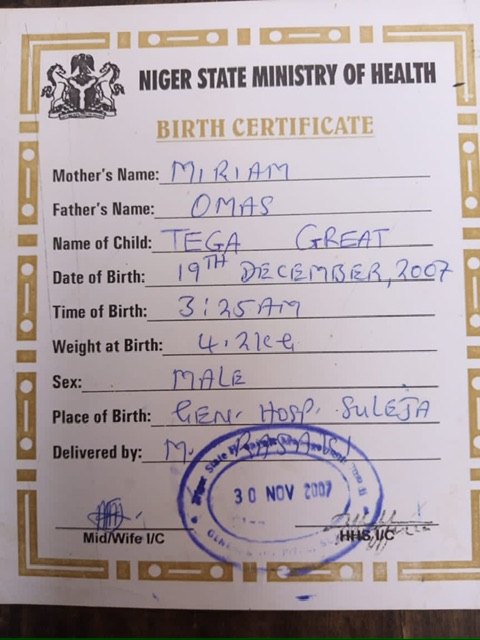 NIGER STATE MINISTRY OF HEALTH
BIRTH CERTIFICATE
Mother's Name: MIRIAM
Father's Name: OMAS
Name of Child: TEGA GREAT
Date of Birth: 19TH DECEMBER, 2007
Time of Birth: 3:25AM
Weight at Birth: 4.2kG
Sex: MALE
Place of Birth: GEN. HOSP. SULEJA
Delivered by: M.
30 NOV 2007
Mid/Wife I/C
HHS, I/C